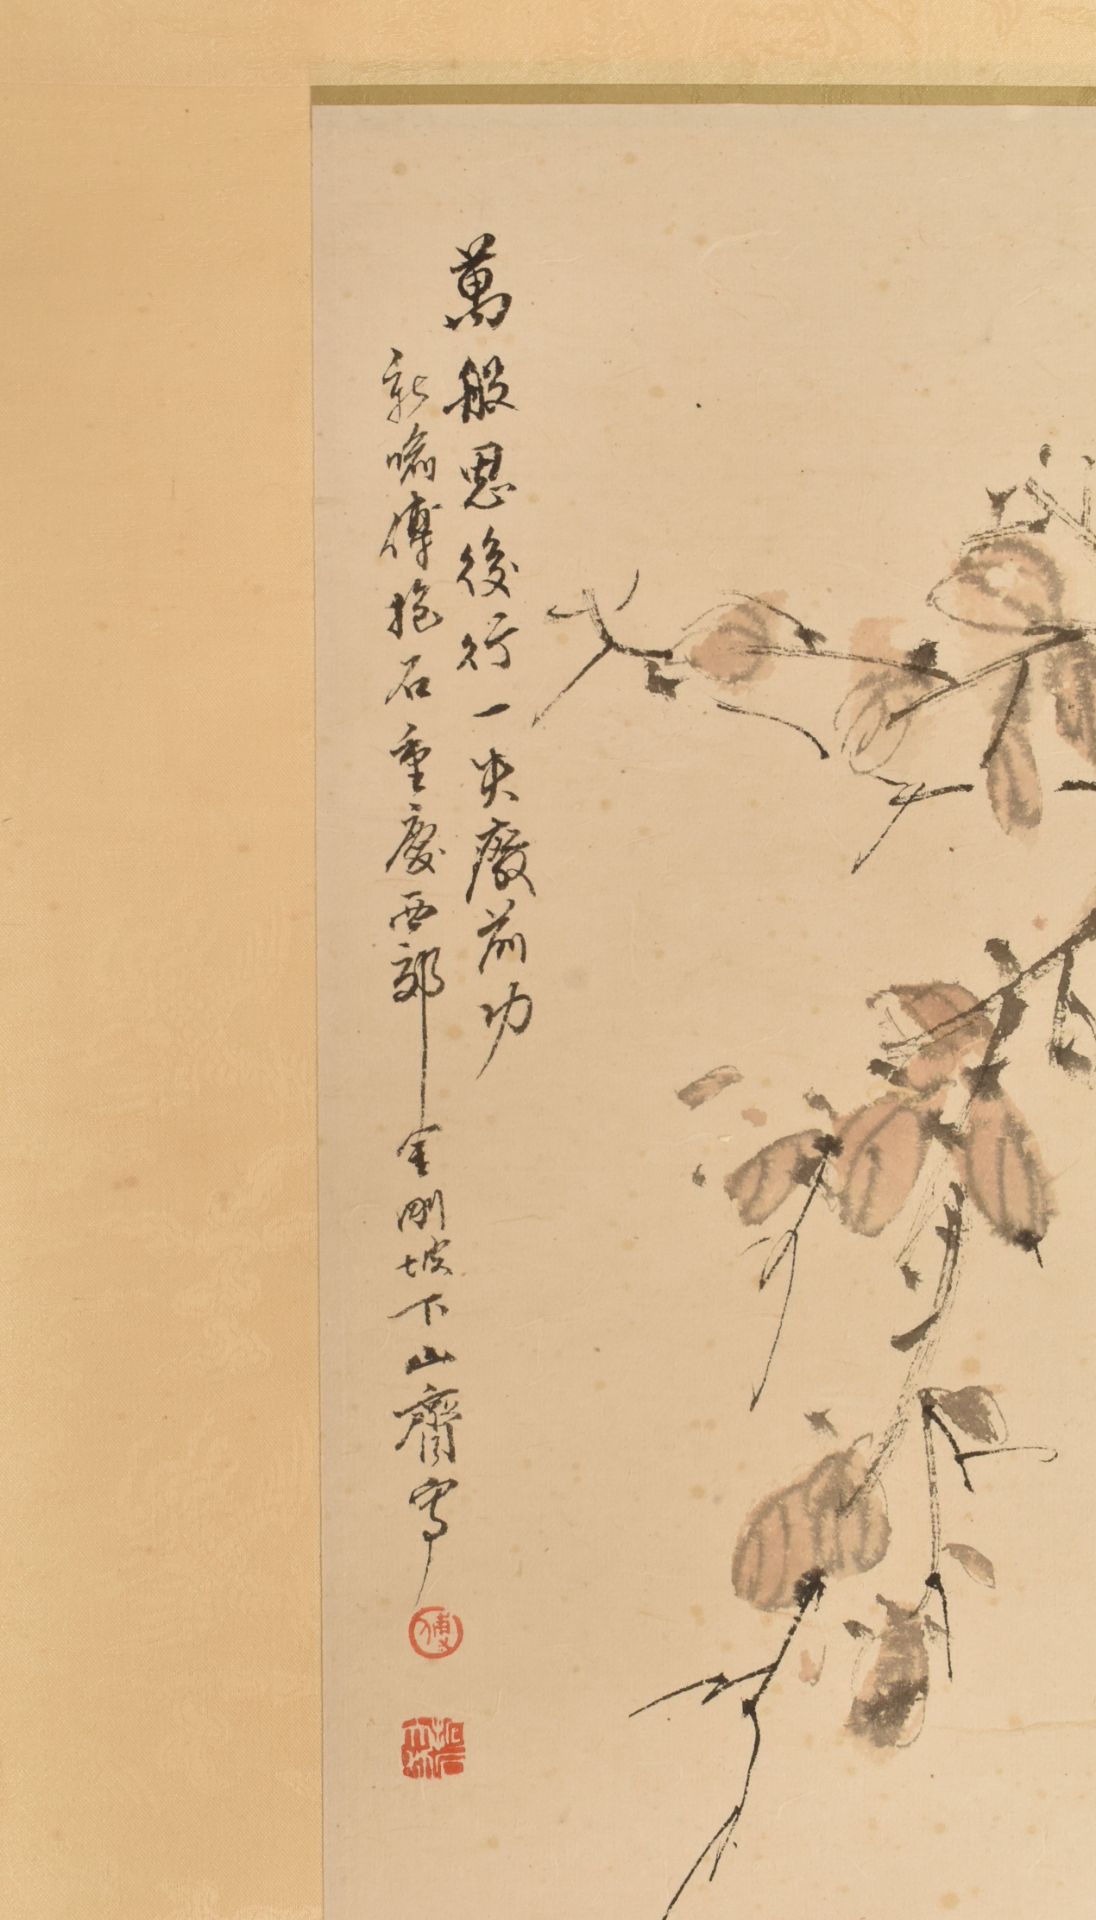 萬般思後行一失廢前功
新喻傅抱石重慶西郊金剛坡下山齋寫
傅